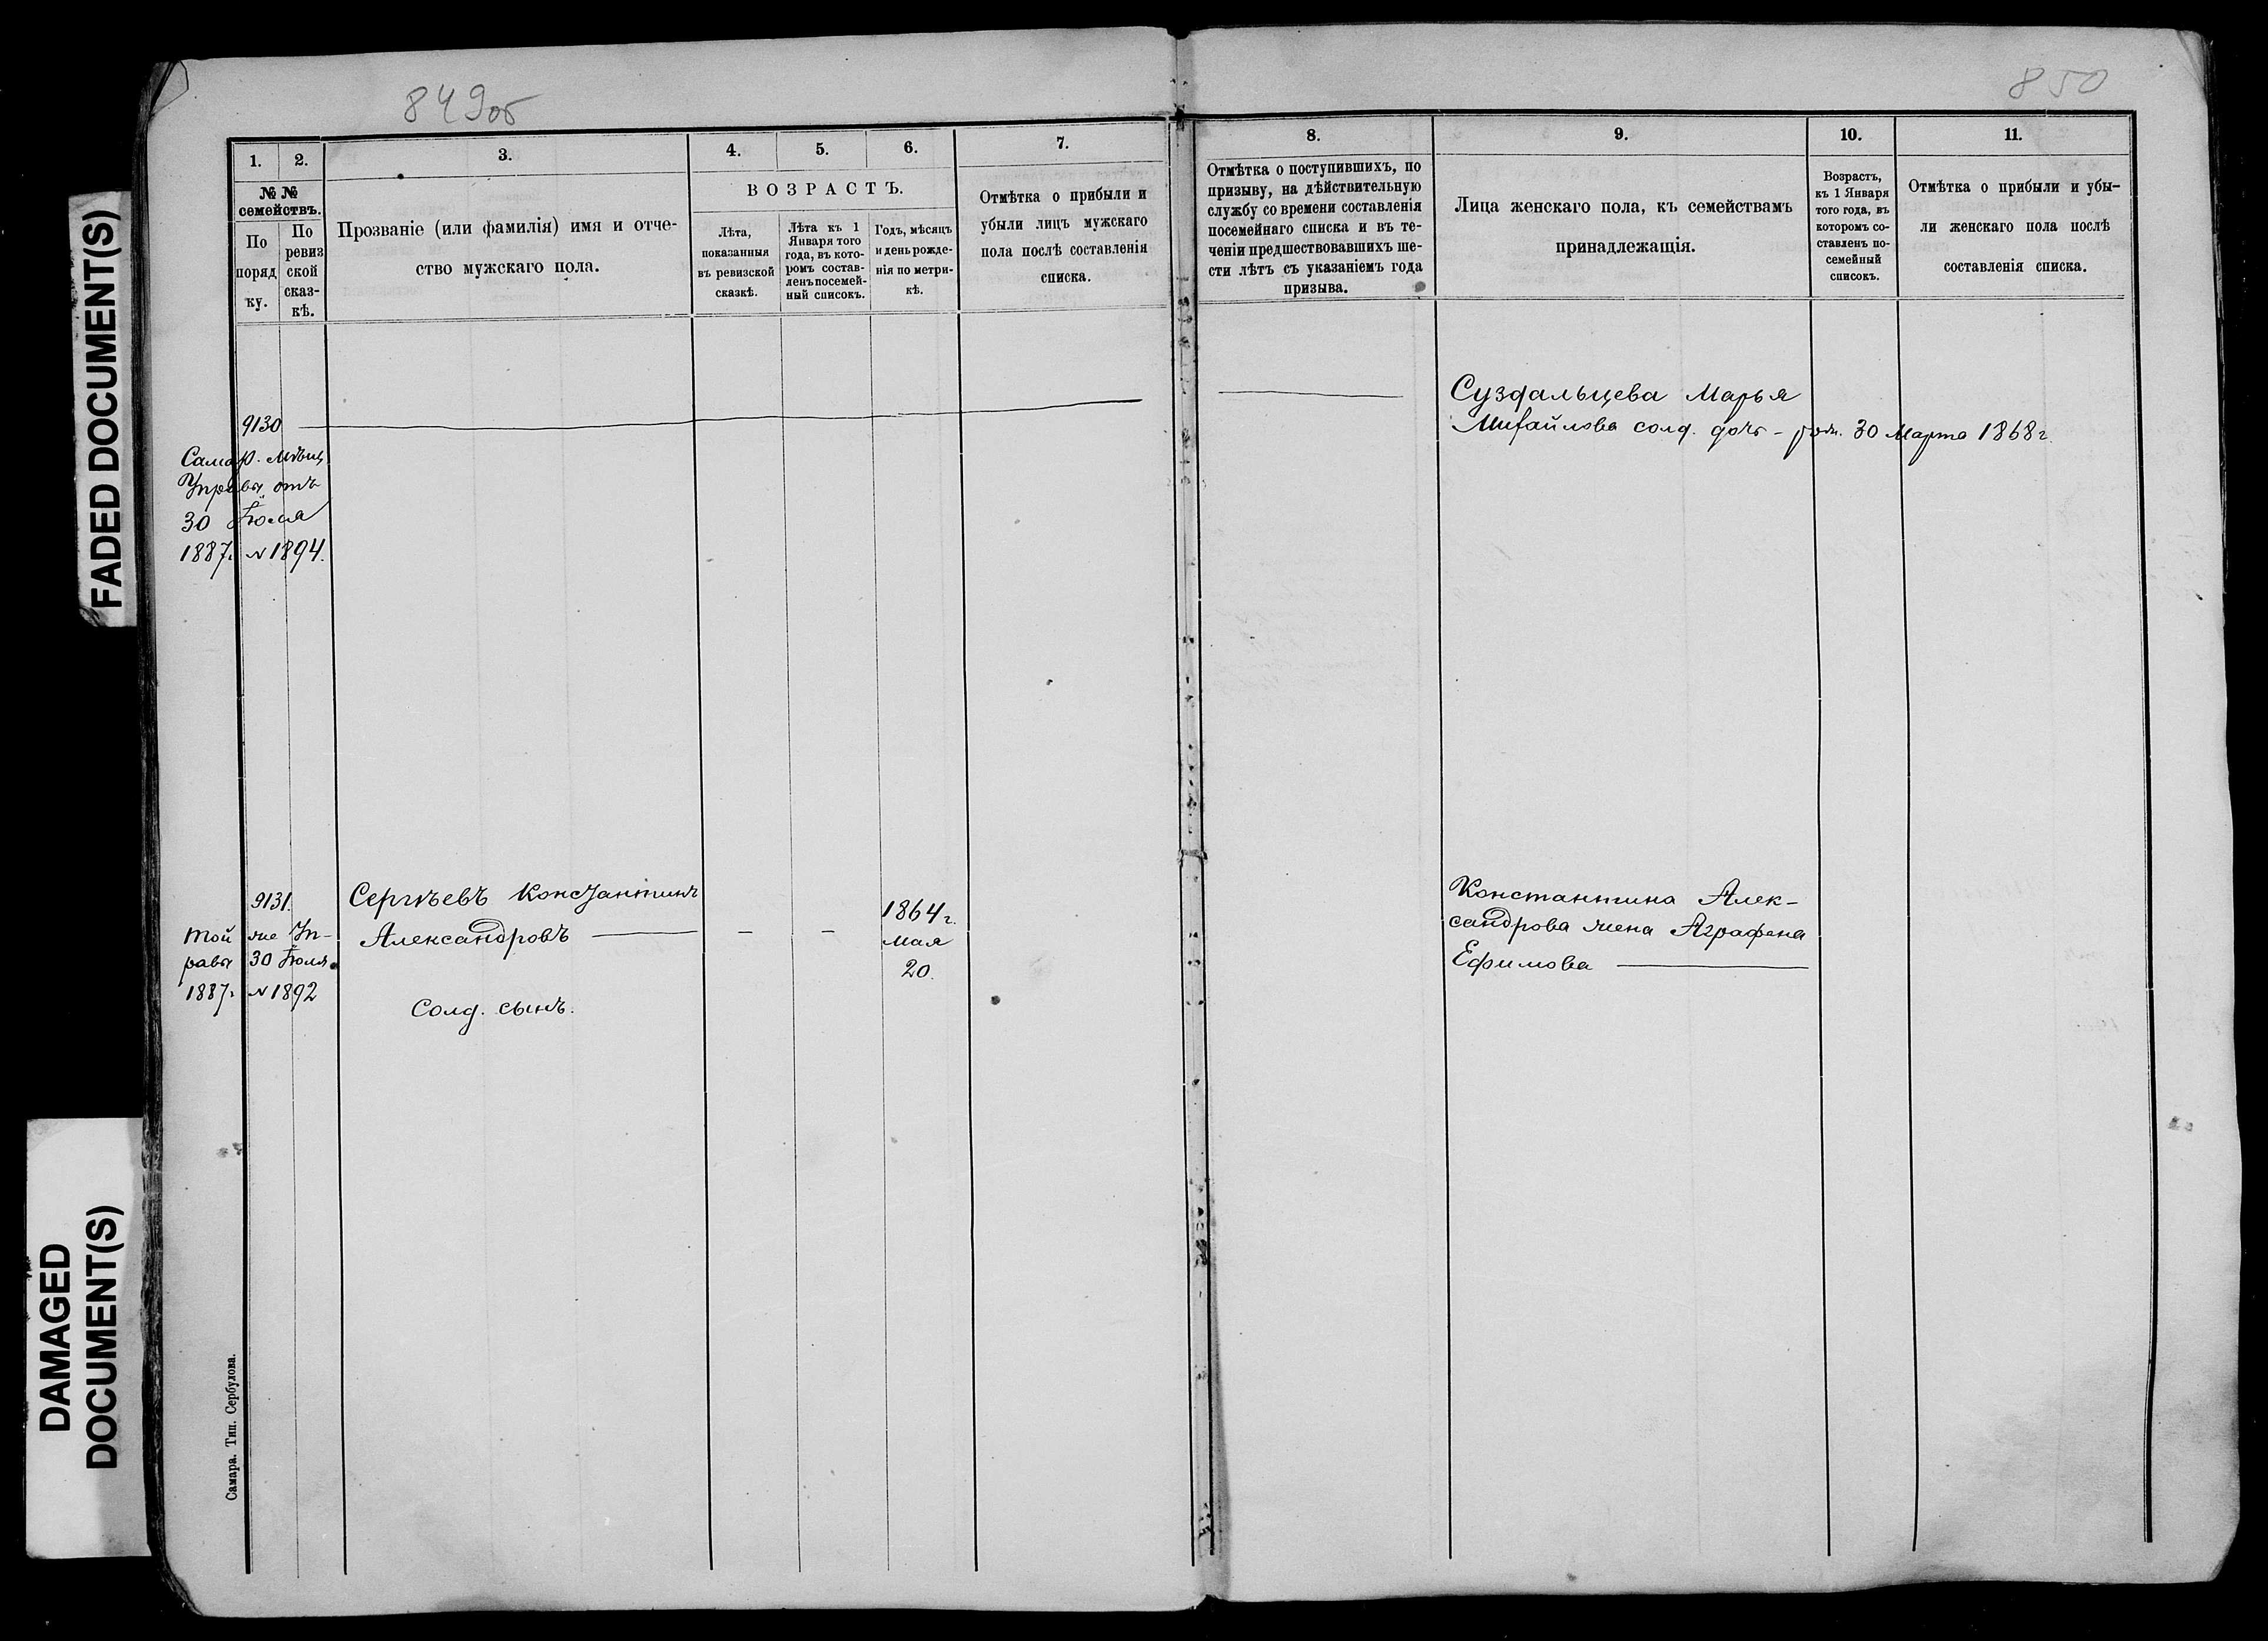 849об
850
FADED DOCUMENT(S)
DAMAGED
DOCUMENT(S)
1.
2.
3.
4.
5.
6.
7.
№ №
семействъ.
По
поряд
ку.
По
ревиз
ской
сказ-
кѣ.
Прозваніе (или фамилія) имя и отче-
ство мужскаго пола.
ВОЗРАСТЪ.
Лѣта,
показанныя
въ ревизской
сказкѣ.
Лѣта къ 1
Января того
года, въ кото-
ромъ состав-
ленъ посемей-
ный списокъ.
Годъ, мѣсяцъ
и день рожде-
нія по метри-
кѣ.
Отмѣтка о прибыли и
убыли лицъ мужскаго
пола послѣ составленія
списка.
8.
9.
10.
11.
Отмѣтка о поступившихъ, по
призыву, на дѣйствительную
службу со времени составленія
посемейнаго списка и въ те-
ченіи предшествовавшихъ ше-
сти лѣтъ съ указаніемъ года
призыва.
Лица женскаго пола, къ семействамъ
принадлежащія.
Возрастъ,
къ 1 Января
того года, въ
которомъ со-
ставленъ по-
семейный
списокъ.
Отмѣтка о прибыли и убы-
ли женскаго пола послѣ
составленія списка.
9130
Самар. Мѣщ.
Управы отъ
30 Іюля
1887г. № 1894.
Суздальцева Марья
Михайлова солд. дочь - родн. 30 Марта 1868г.
9131.
Той же Уп-
равы 30 Іюля
1887г. № 1892
Сергѣевъ Константинъ
Александровъ — - -
Солд. сынъ.
1864г.
Мая
20.
Константина Алек-
сандрова жена Аграфена
Ефимова —
Самара. Тип. Сербулова.